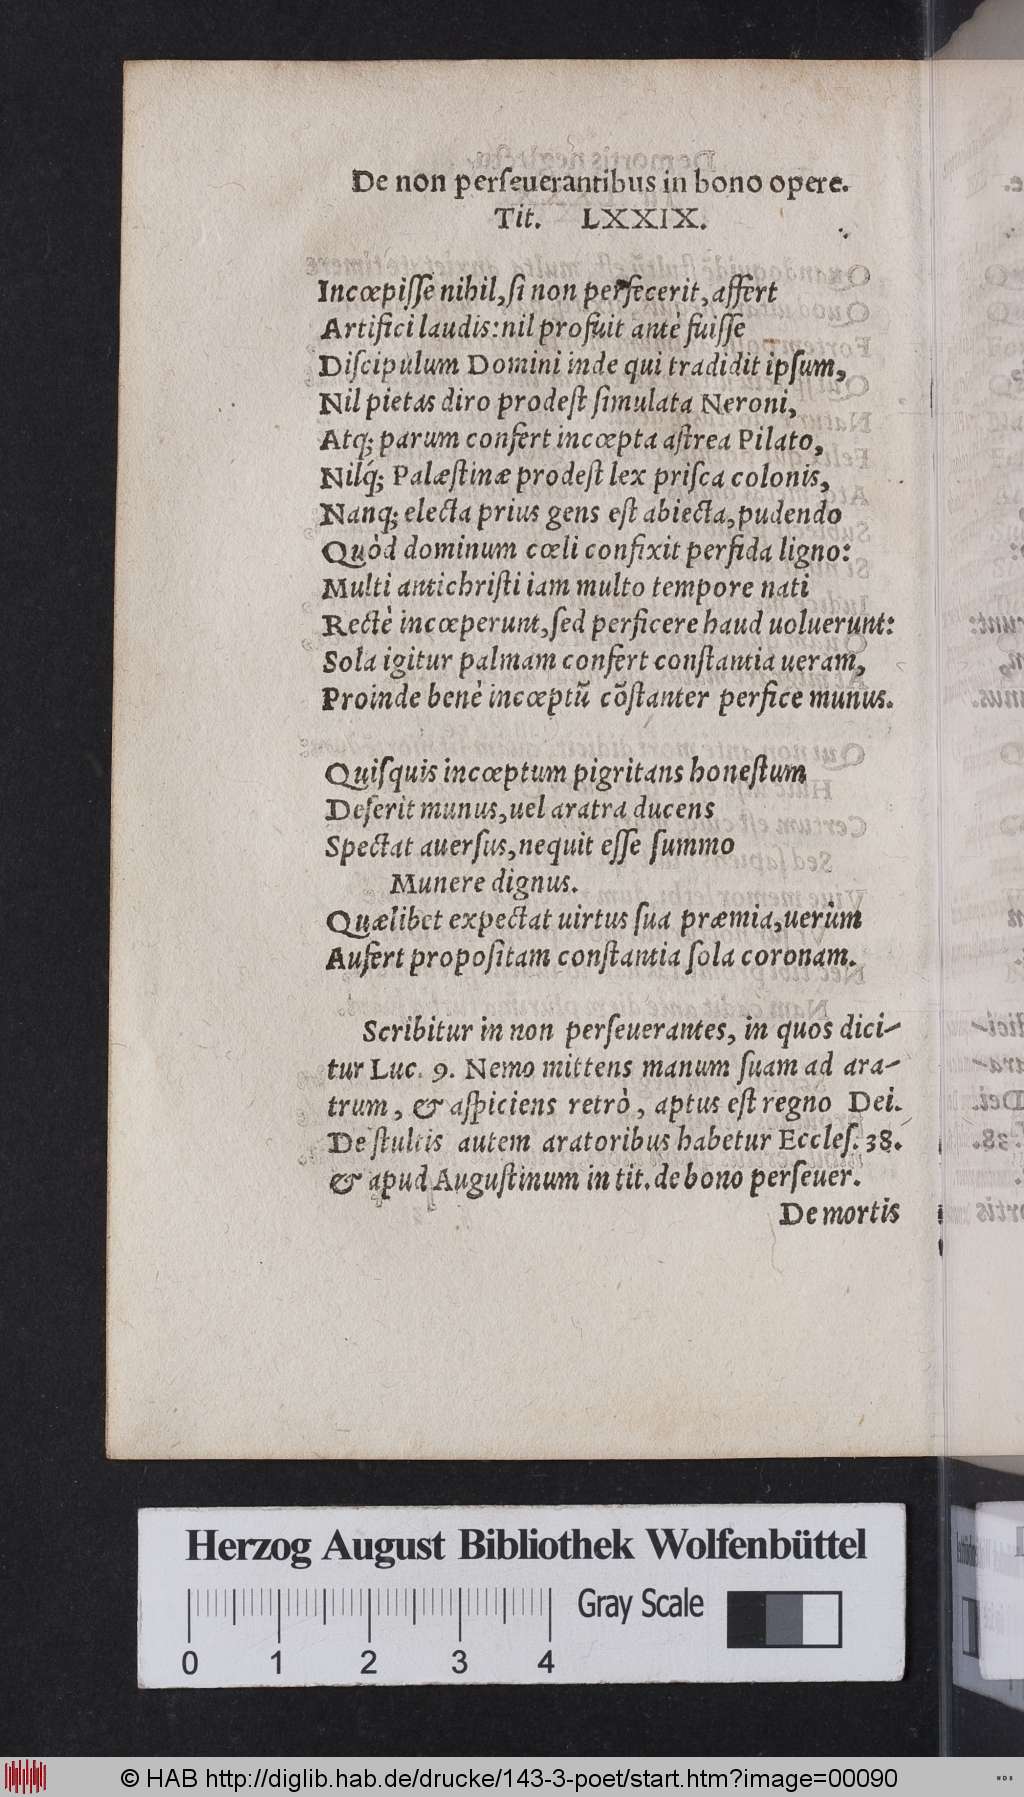 De non perſeuerantibus in bono opere.
Tit. LXXIX.
Incœpiſſe nihil, ſi non perfecerit, affert
Artifici laudis: nil profuit antè fuiſſe
Diſcipulum Domini inde qui tradidit ipſum,
Nil pietas diro prodeſt ſimulata Neroni,
Atq; parum confert incœpta aſtrea Pilato,
Nilq́; Palæſtinæ prodeſt lex priſca colonis,
Nanq; electa prius gens eſt abiecta, pudendo
Quòd dominum cœli confixit perfida ligno:
Multi antichriſti iam multo tempore nati
Rectè incœperunt, ſed perficere haud uoluerunt:
Sola igitur palmam confert conſtantia ueram,
Proinde benè incœptũ cõſtanter perfice munus.
Quiſquis incœptum pigritans honeſtum
Deſerit munus, uel aratra ducens
Spectat auerſus, nequit eſſe ſummo
Munere dignus.
Quælibet expectat uirtus ſua præmia, uerùm
Aufert propoſitam conſtantia ſola coronam.
Scribitur in non perſeuerantes, in quos dici-
tur Luc. 9. Nemo mittens manum ſuam ad ara-
trum, & aſpiciens retrò, aptus eſt regno Dei.
De ſtultis autem aratoribus habetur Eccleſ. 38.
& apud Auguſtinum in tit. de bono perſeuer.
De mortis
Herzog August Bibliothek Wolfenbüttel
Gray Scale
0 1 2 3 4
© HAB http://diglib.hab.de/drucke/143-3-poet/start.htm?image=00090